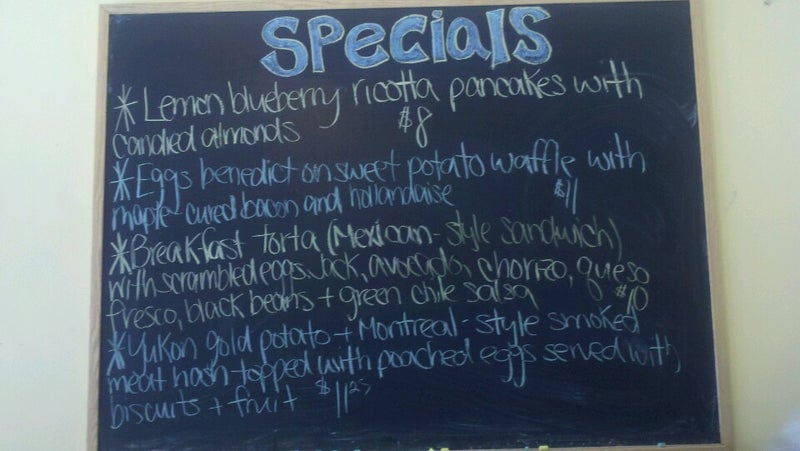 SPecialS
* Lemon blueberry ricotta pancakes with
candied almonds $8
* Eggs benedict on sweet potato waffle with
maple-cured bacon and hollandaise $11
* Breakfast torta (Mexican-style sandwich)
with scrambled eggs, Jack, avocado, chorizo, queso
fresco, black beans + green chile salsa $10
* Yukon gold potato + Montreal-style smoked
meat hash topped with poached eggs served with
biscuits + fruit $11.25